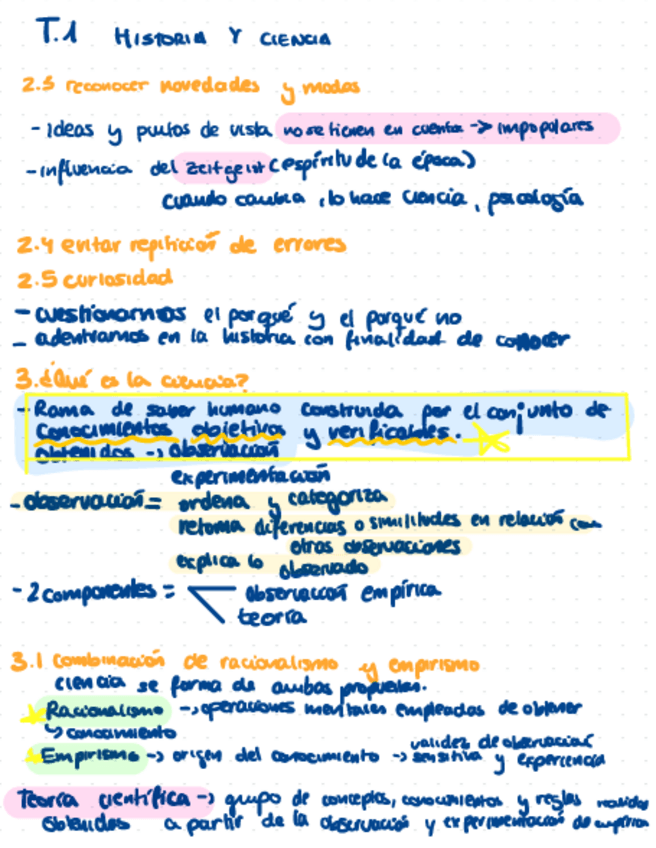 T.1 HISTORIA Y CIENCIA
2.3 reconocer novedades y modas
- Ideas y puntos de vista no se tienen en cuenta -> impopulares
- influencia del zeitgeist (espíritu de la época)
cuando cambia, lo hace ciencia, psicología
2.4 evitar repitición de errores
2.5 curiosidad
- cuestionarnos el porqué y el porqué no
- adentrarnos en la historia con finalidad de conocer
3. ¿Qué es la ciencia?
- Rama de saber humano construida por el conjunto de
conocimientos objetivos y verificables.
obtenidos -> observación
experimentación
- observación = ordena y categoriza
retoma diferencias o similitudes en relación con
otras observaciones
explica lo observado
- 2 componentes = observación empírica
teoría
3.1 combinación de racionalismo y empirismo
ciencia se forma de ambas propuestas.
Racionalismo -> operaciones mentales empleadas de obtener
↳ conocimiento
Empirismo -> origen del conocimiento -> validez de observación
sensitiva y experiencia
Teoría científica -> grupo de conceptos, conocimientos y reglas
obtenidos a partir de la observación y experimentación de